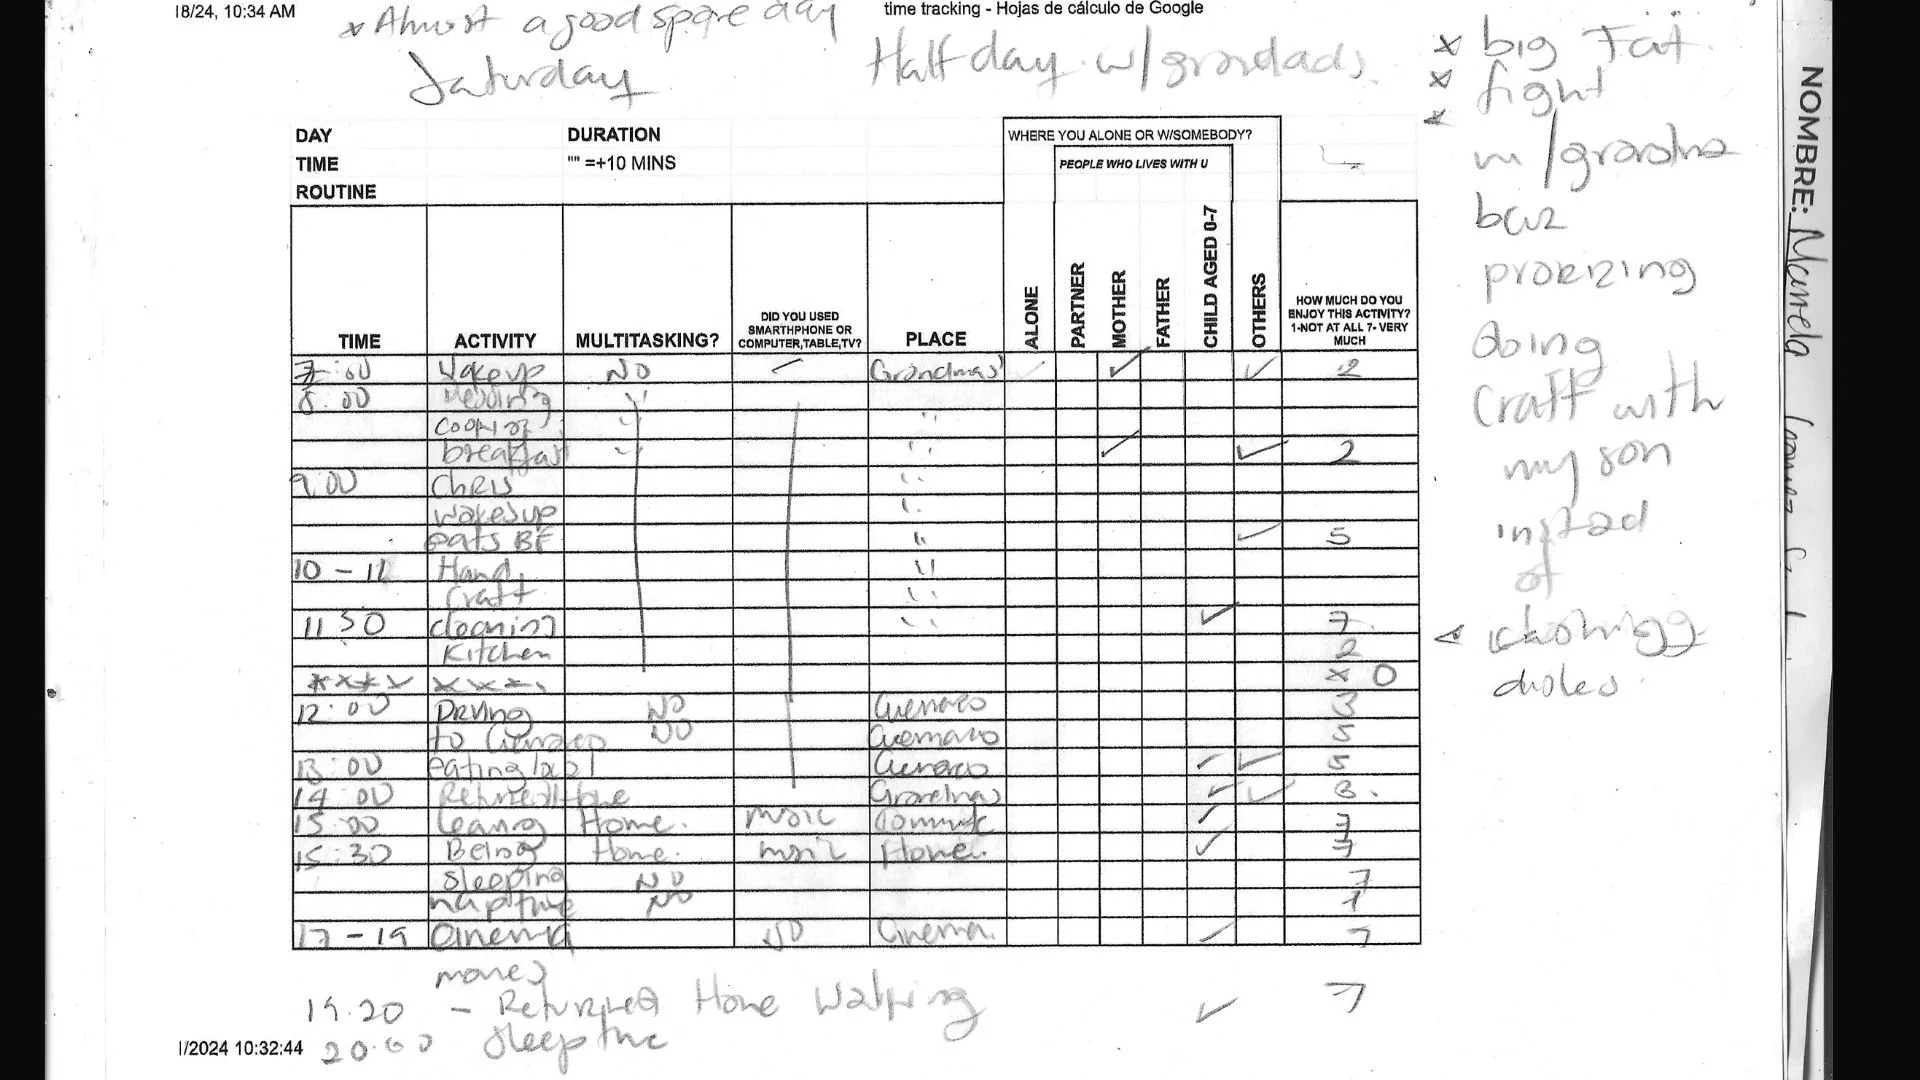 18/24, 10:34 AM
time tracking - Hojas de cálculo de Google
* Almost a good spare day
Saturday
Half day w/grandads
DAY
TIME
ROUTINE
DURATION
"" =+10 MINS
WHERE YOU ALONE OR W/SOMEBODY?
PEOPLE WHO LIVES WITH U
TIME ACTIVITY MULTITASKING? DID YOU USED SMARTHPHONE OR COMPUTER,TABLE,TV? PLACE ALONE PARTNER MOTHER FATHER CHILD AGED 0-7 OTHERS HOW MUCH DO YOU ENJOY THIS ACTIVITY? 1-NOT AT ALL 7- VERY MUCH
7:00 Wakeup NO - Grandmas ✓ ✓ 2
8:00
cooking "
breakfast " ✓ ✓ 2
9:00 Chris "
wakesup "
eats BF " ✓ 5
10 - 11 Hand "
craft "
11 30 cleaning " ✓ 7
Kitchen 2
**** **** * 0
12:00 Driving NO 3
to NO 5
13:00 eating local ✓ ✓ 5
14:00 Returned Home Grandmas ✓ ✓ 3
15:00 Home. music ✓ 7
15:30 Being Home. music Home. ✓ 7
sleeping NO 7
naptime NO 7
17 - 19 Cinema NO Cinema. ✓ 7
movies
19.20 - Returned Home Walking ✓ 7
20:00 Sleep time
I/2024 10:32:44
* big Fat
* fight
w/grandma
bcuz
doing
craft with
my son
instead
of
NOMBRE: Manela